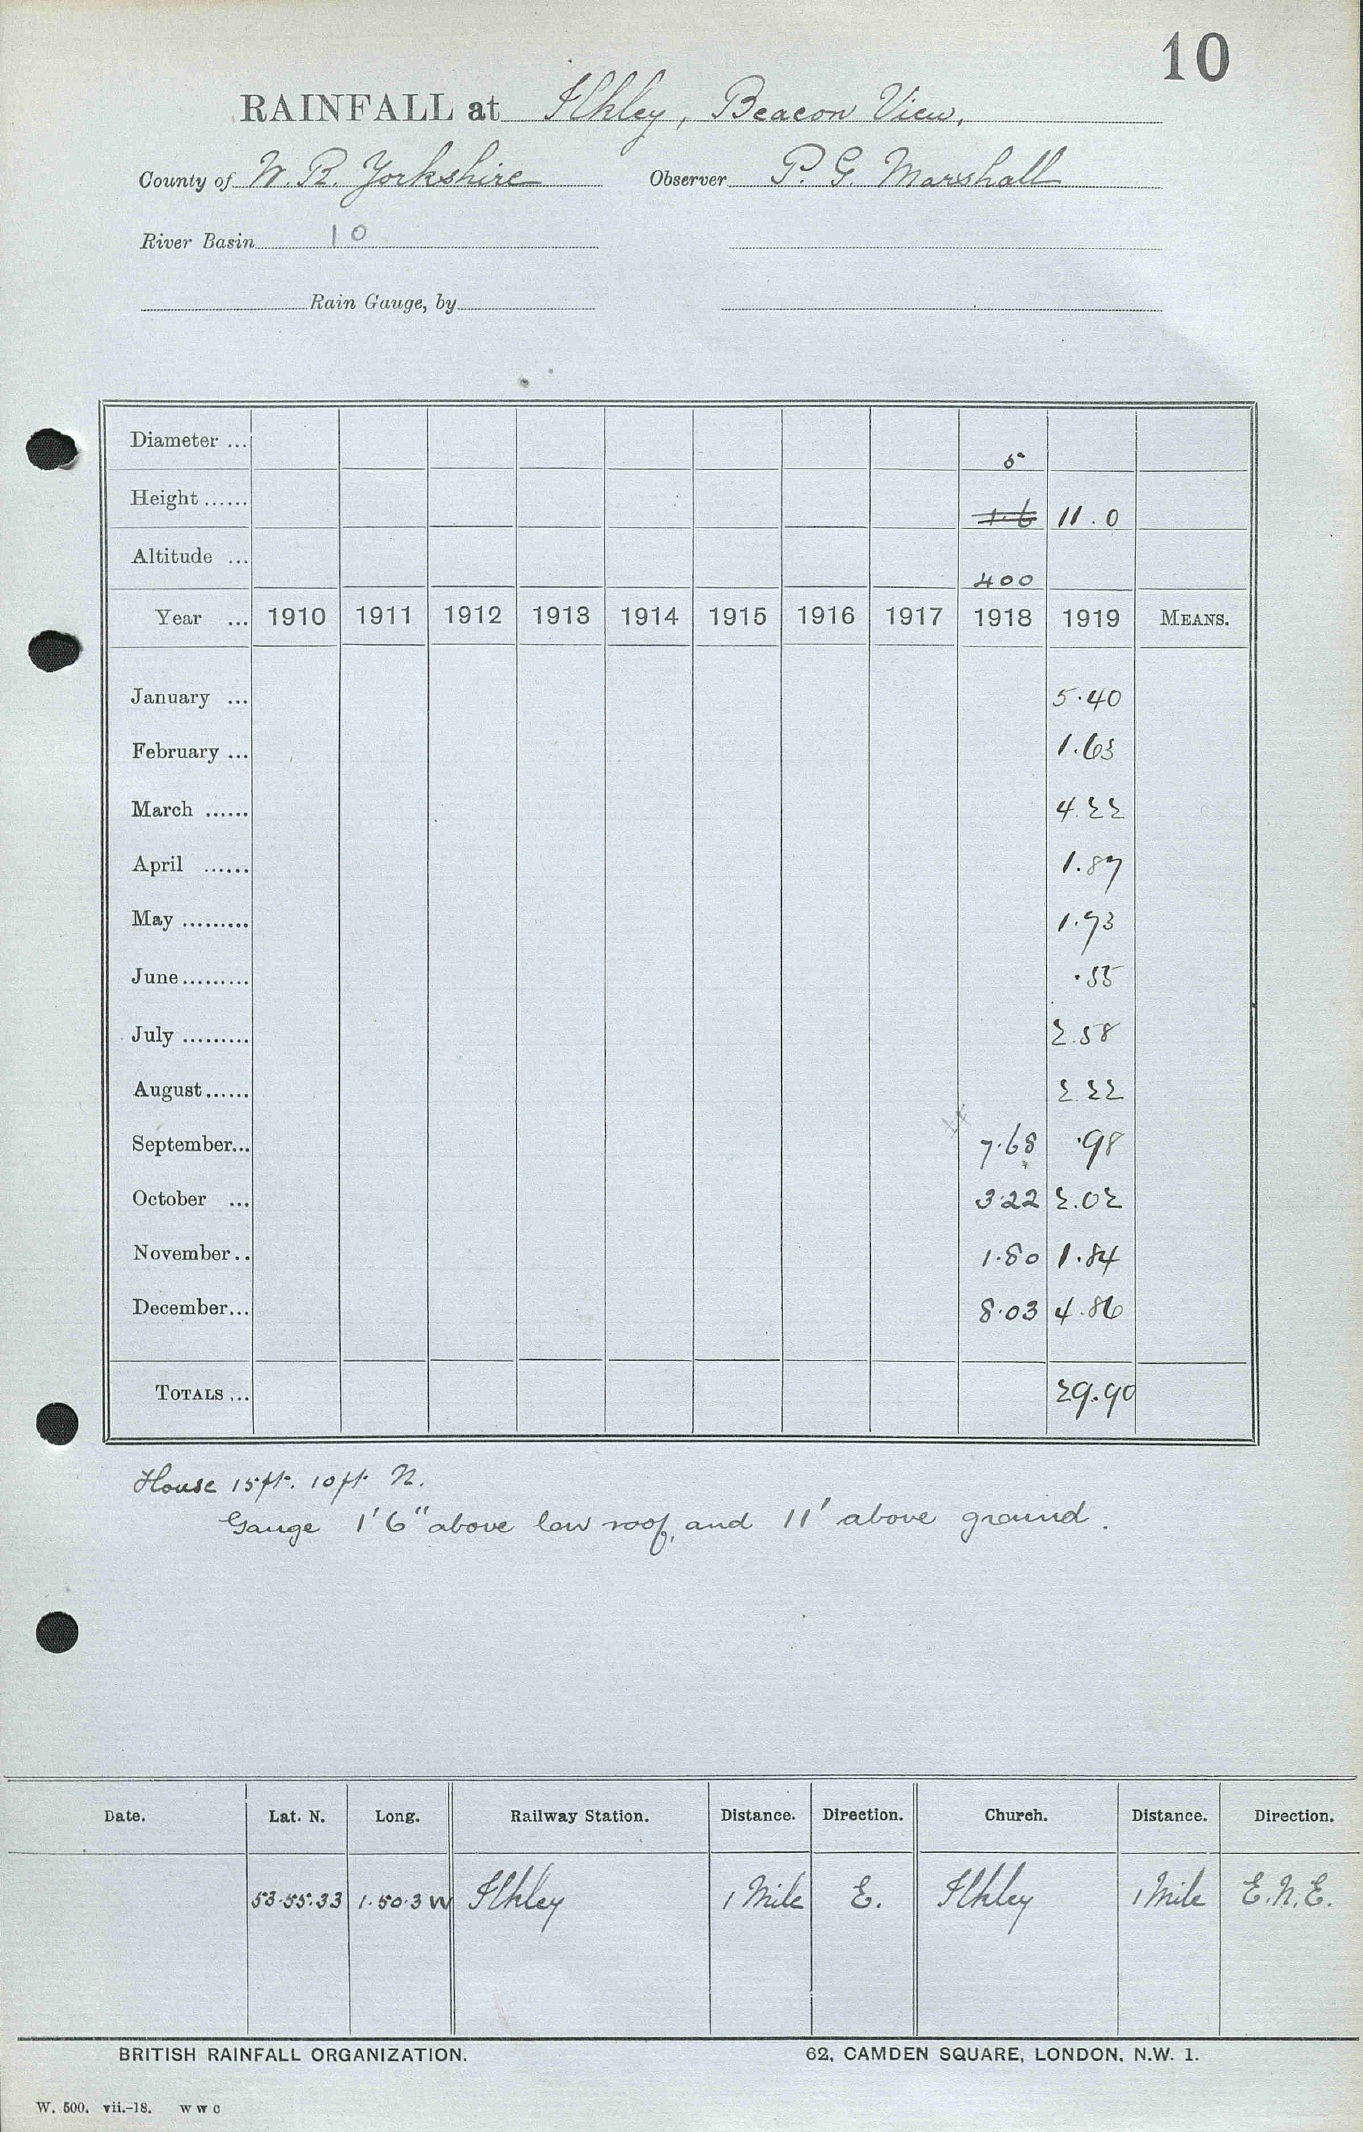 10
RAINFALL at Ilkley, Beacon View.
County of W. R. Yorkshire Observer P. G. Marshall
River Basin 10
Rain Gauge, by
Diameter ... 5
Height ...... 1.6 11.0
Altitude ... 400
Year ... 1910 1911 1912 1913 1914 1915 1916 1917 1918 1919 MEANS.
January ... 5.40
February ... 1.63
March ...... 4.22
April ...... 1.87
May ......... 1.73
June ......... .55
July ......... 2.58
August ...... 2.22
September... 7.68 .98
October ... 3.22 2.02
November.. 1.80 1.84
December... 8.03 4.86
TOTALS ... 29.90
House 15ft. 10ft N.
Gauge 1'6" above low roof, and 11' above ground.
Date. Lat. N. Long. Railway Station. Distance. Direction. Church. Distance. Direction.
53.55.33 1.50.3 W Ilkley 1 Mile E. Ilkley 1 Mile E.N.E.
BRITISH RAINFALL ORGANIZATION. 62, CAMDEN SQUARE, LONDON, N.W. 1.
W. 500. vii.-18. W W C